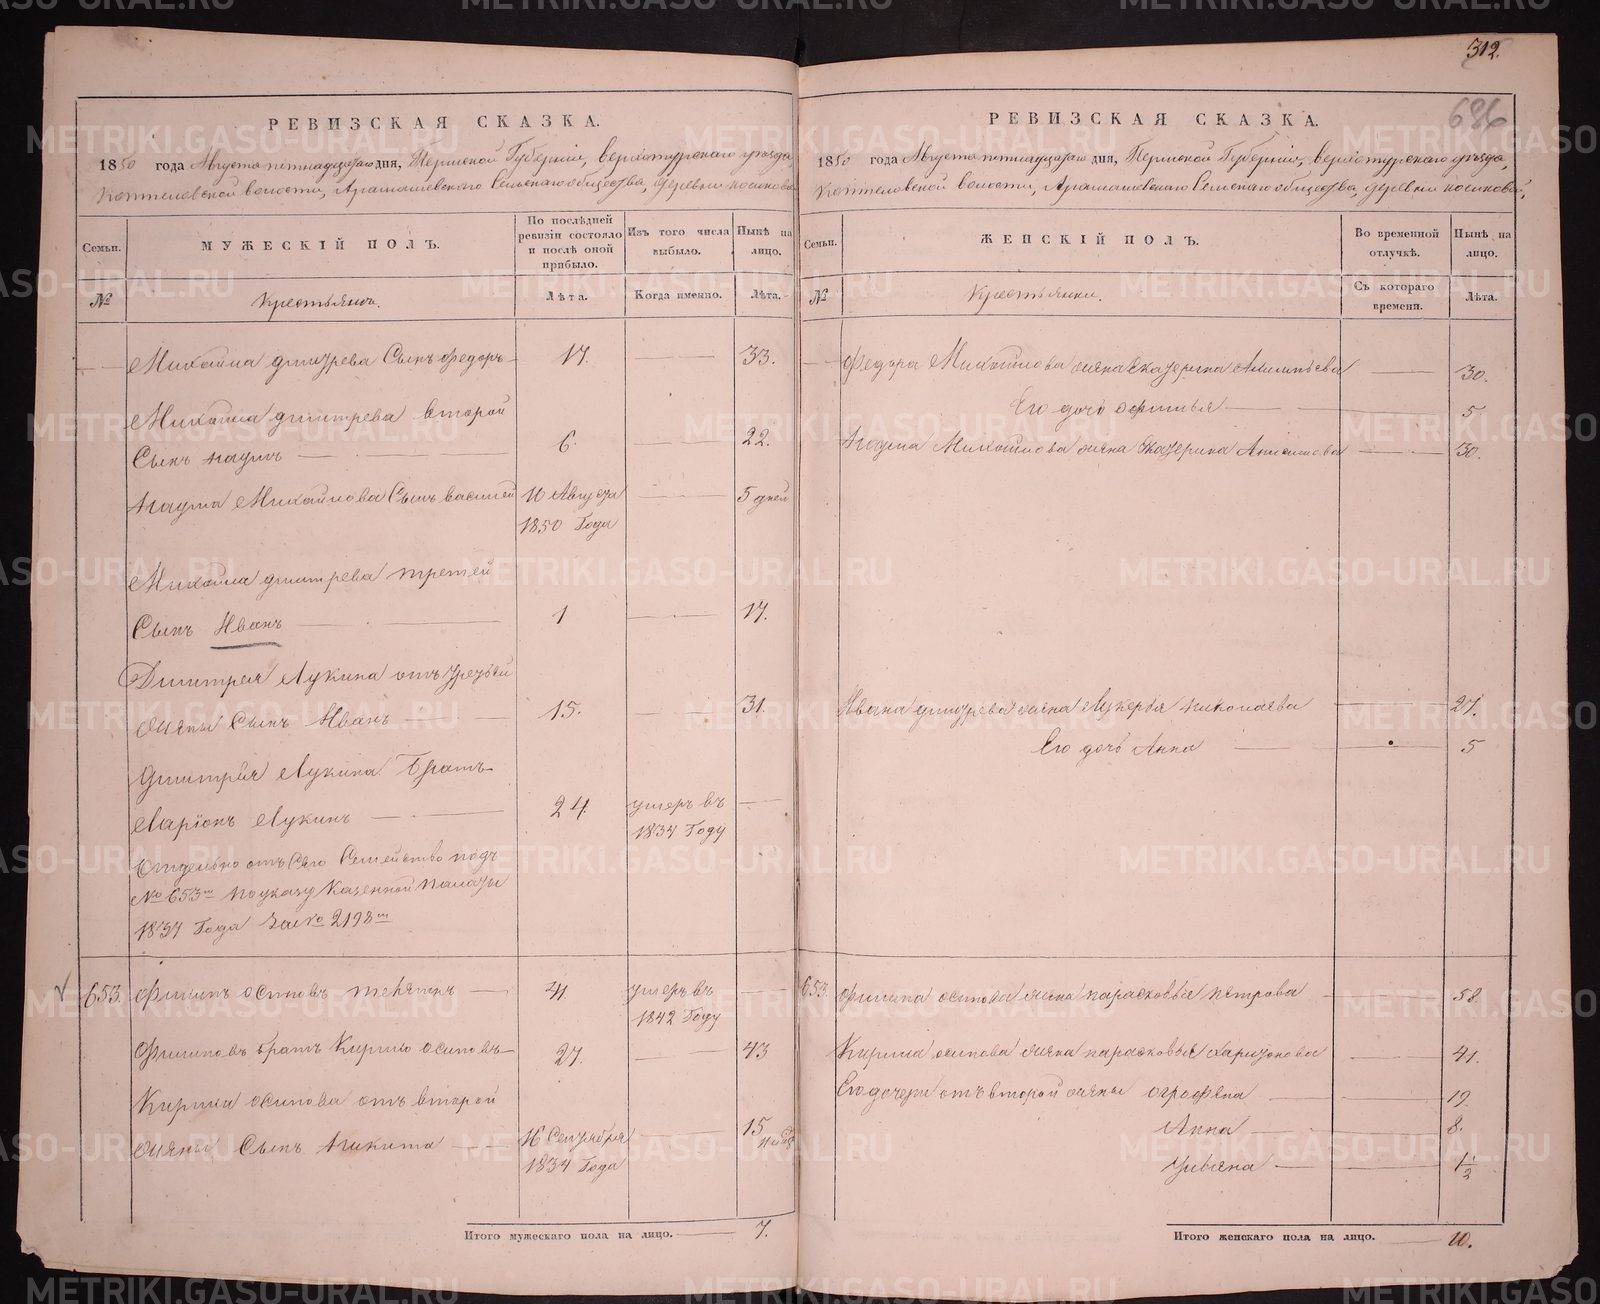 312.
686
РЕВИЗСКАЯ СКАЗКА.
1850 года Августа пятнадцатаго дня, Пермской Губерніи, Верхотурскаго уѣзда,
Коптеловской волости, Арамашевскаго Сельскаго общества, деревни Косиковой
Семьи.
МУЖЕСКІЙ ПОЛЪ.
По послѣдней ревизіи состояло и послѣ оной прибыло.
Изъ того числа выбыло.
Нынѣ на лицо.
№
Крестьянъ.
Лѣта.
Когда именно.
Лѣта.
Михайла Дмитрева Сынъ Федоръ 17. 33.
Михайла Дмитрева второй
Сынъ Наумъ 6. 22.
Наума Михайлова Сынъ Василей 10 Августа 5 дней
1850 Года
Михайла Дмитрева третей
Сынъ Иванъ 1 17.
Дмитрея Лукина отъ третьей
жены Сынъ Иванъ 15. 31.
Дмитрея Лукина Братъ
Ларіонъ Лукинъ 24. умеръ въ
1837 Году
Отдельно отъ Сего Семейство подъ
№ 653м поуказу Казенной Палаты
1837 Года за № 2198м
653. Филипъ Осиповъ 41. умеръ въ
1842 Году
Филиповъ братъ Кирило Осиповъ 27. 43
Кирила Осипова отъ второй
жены Сынъ Никита 16 Сентября 15
1834 Года
Итого мужескаго пола на лицо. 7.
РЕВИЗСКАЯ СКАЗКА.
1850 года Августа пятнадцатаго дня, Пермской Губерніи, Верхотурскаго уѣзда,
Коптеловской волости, Арамашевскаго Сельскаго общества, деревни Косиковой,
Семьи.
ЖЕНСКІЙ ПОЛЪ.
Во временной отлучкѣ.
Нынѣ на лицо.
№
Крестьянки.
Съ котораго времени.
Лѣта.
Федора Михайлова жена Екатерина 30.
Его дочь Офимья 5
Наума Михайлова жена Екатерина Анисимова 30.
Ивана Дмитрева жена Лукерья Николаева 27.
Его дочь Анна 5
653. Филипа Осипова жена Парасковья Петрова 58.
Кирила Осипова жена Парасковья Харитонова 41.
Его дочери отъ второй жены Ографена 19
Анна 8.
Ульяна 1 1/2
Итого женскаго пола на лицо. 10.
METRIKI.GASO-URAL.RU